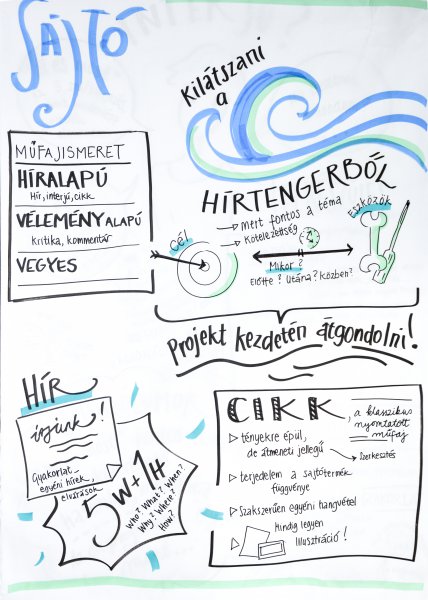 SAJTÓ
Kilátszani
a
HÍRTENGERBŐL
MŰFAJISMERET
HÍRALAPÚ
Hír, interjú, cikk
VÉLEMÉNY ALAPÚ
Kritika, kommentár
VEGYES
Cél
Mért fontos a téma
Kötelezettség
Eszközök
Mikor?
Előtte? Utána? Közben?
Projekt kezdetén átgondolni!
HÍR
írjunk!
Gyakorlat
egyéni hírek,
elírások
5W+1H
Who? What? When?
Why? Where?
How?
CIKK, a klasszikus
nyomtatott
műfaj
tényekre épül,
de átmeneti jellegű
Szerkesztés
terjedelem a sajtótermék
függvénye
Szakszerűen egyéni hangvétel
Mindig legyen
Illusztráció!